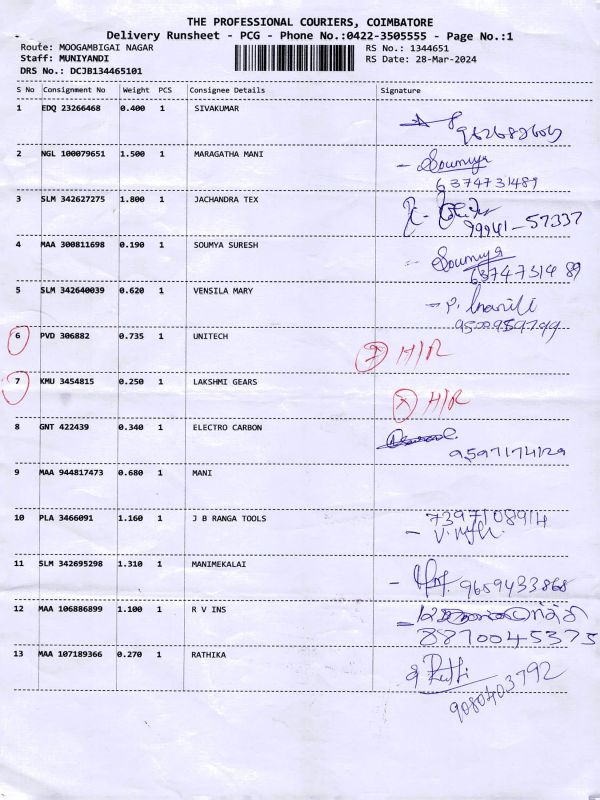 THE PROFESSIONAL COURIERS, COIMBATORE
Delivery Runsheet - PCG - Phone No.:0422-3505555 - Page No.:1
Route: MOOGAMBIGAI NAGAR RS No.: 1344651
Staff: MUNIYANDI RS Date: 28-Mar-2024
DRS No.: DCJB134465101
S No Consignment No Weight PCS Consignee Details Signature
1 EDQ 23266468 0.400 1 SIVAKUMAR
2 NGL 100079651 1.500 1 MARAGATHA MANI - Soumiya
6374731489
3 SLM 342627275 1.800 1 JACHANDRA TEX
99941-57337
4 MAA 300811698 0.190 1 SOUMYA SURESH Soumiya
6374731489
5 SLM 342640039 0.620 1 VENSILA MARY
6 PVD 306882 0.735 1 UNITECH H/R
7 KMU 3454815 0.250 1 LAKSHMI GEARS H/R
8 GNT 422439 0.340 1 ELECTRO CARBON
9597174129
9 MAA 944817473 0.680 1 MANI
10 PLA 3466091 1.160 1 J B RANGA TOOLS 7397108914
11 SLM 342695298 1.310 1 MANIMEKALAI 9659433868
12 MAA 106886899 1.100 1 R V INS
8870045375
13 MAA 107189366 0.270 1 RATHIKA
9080403792